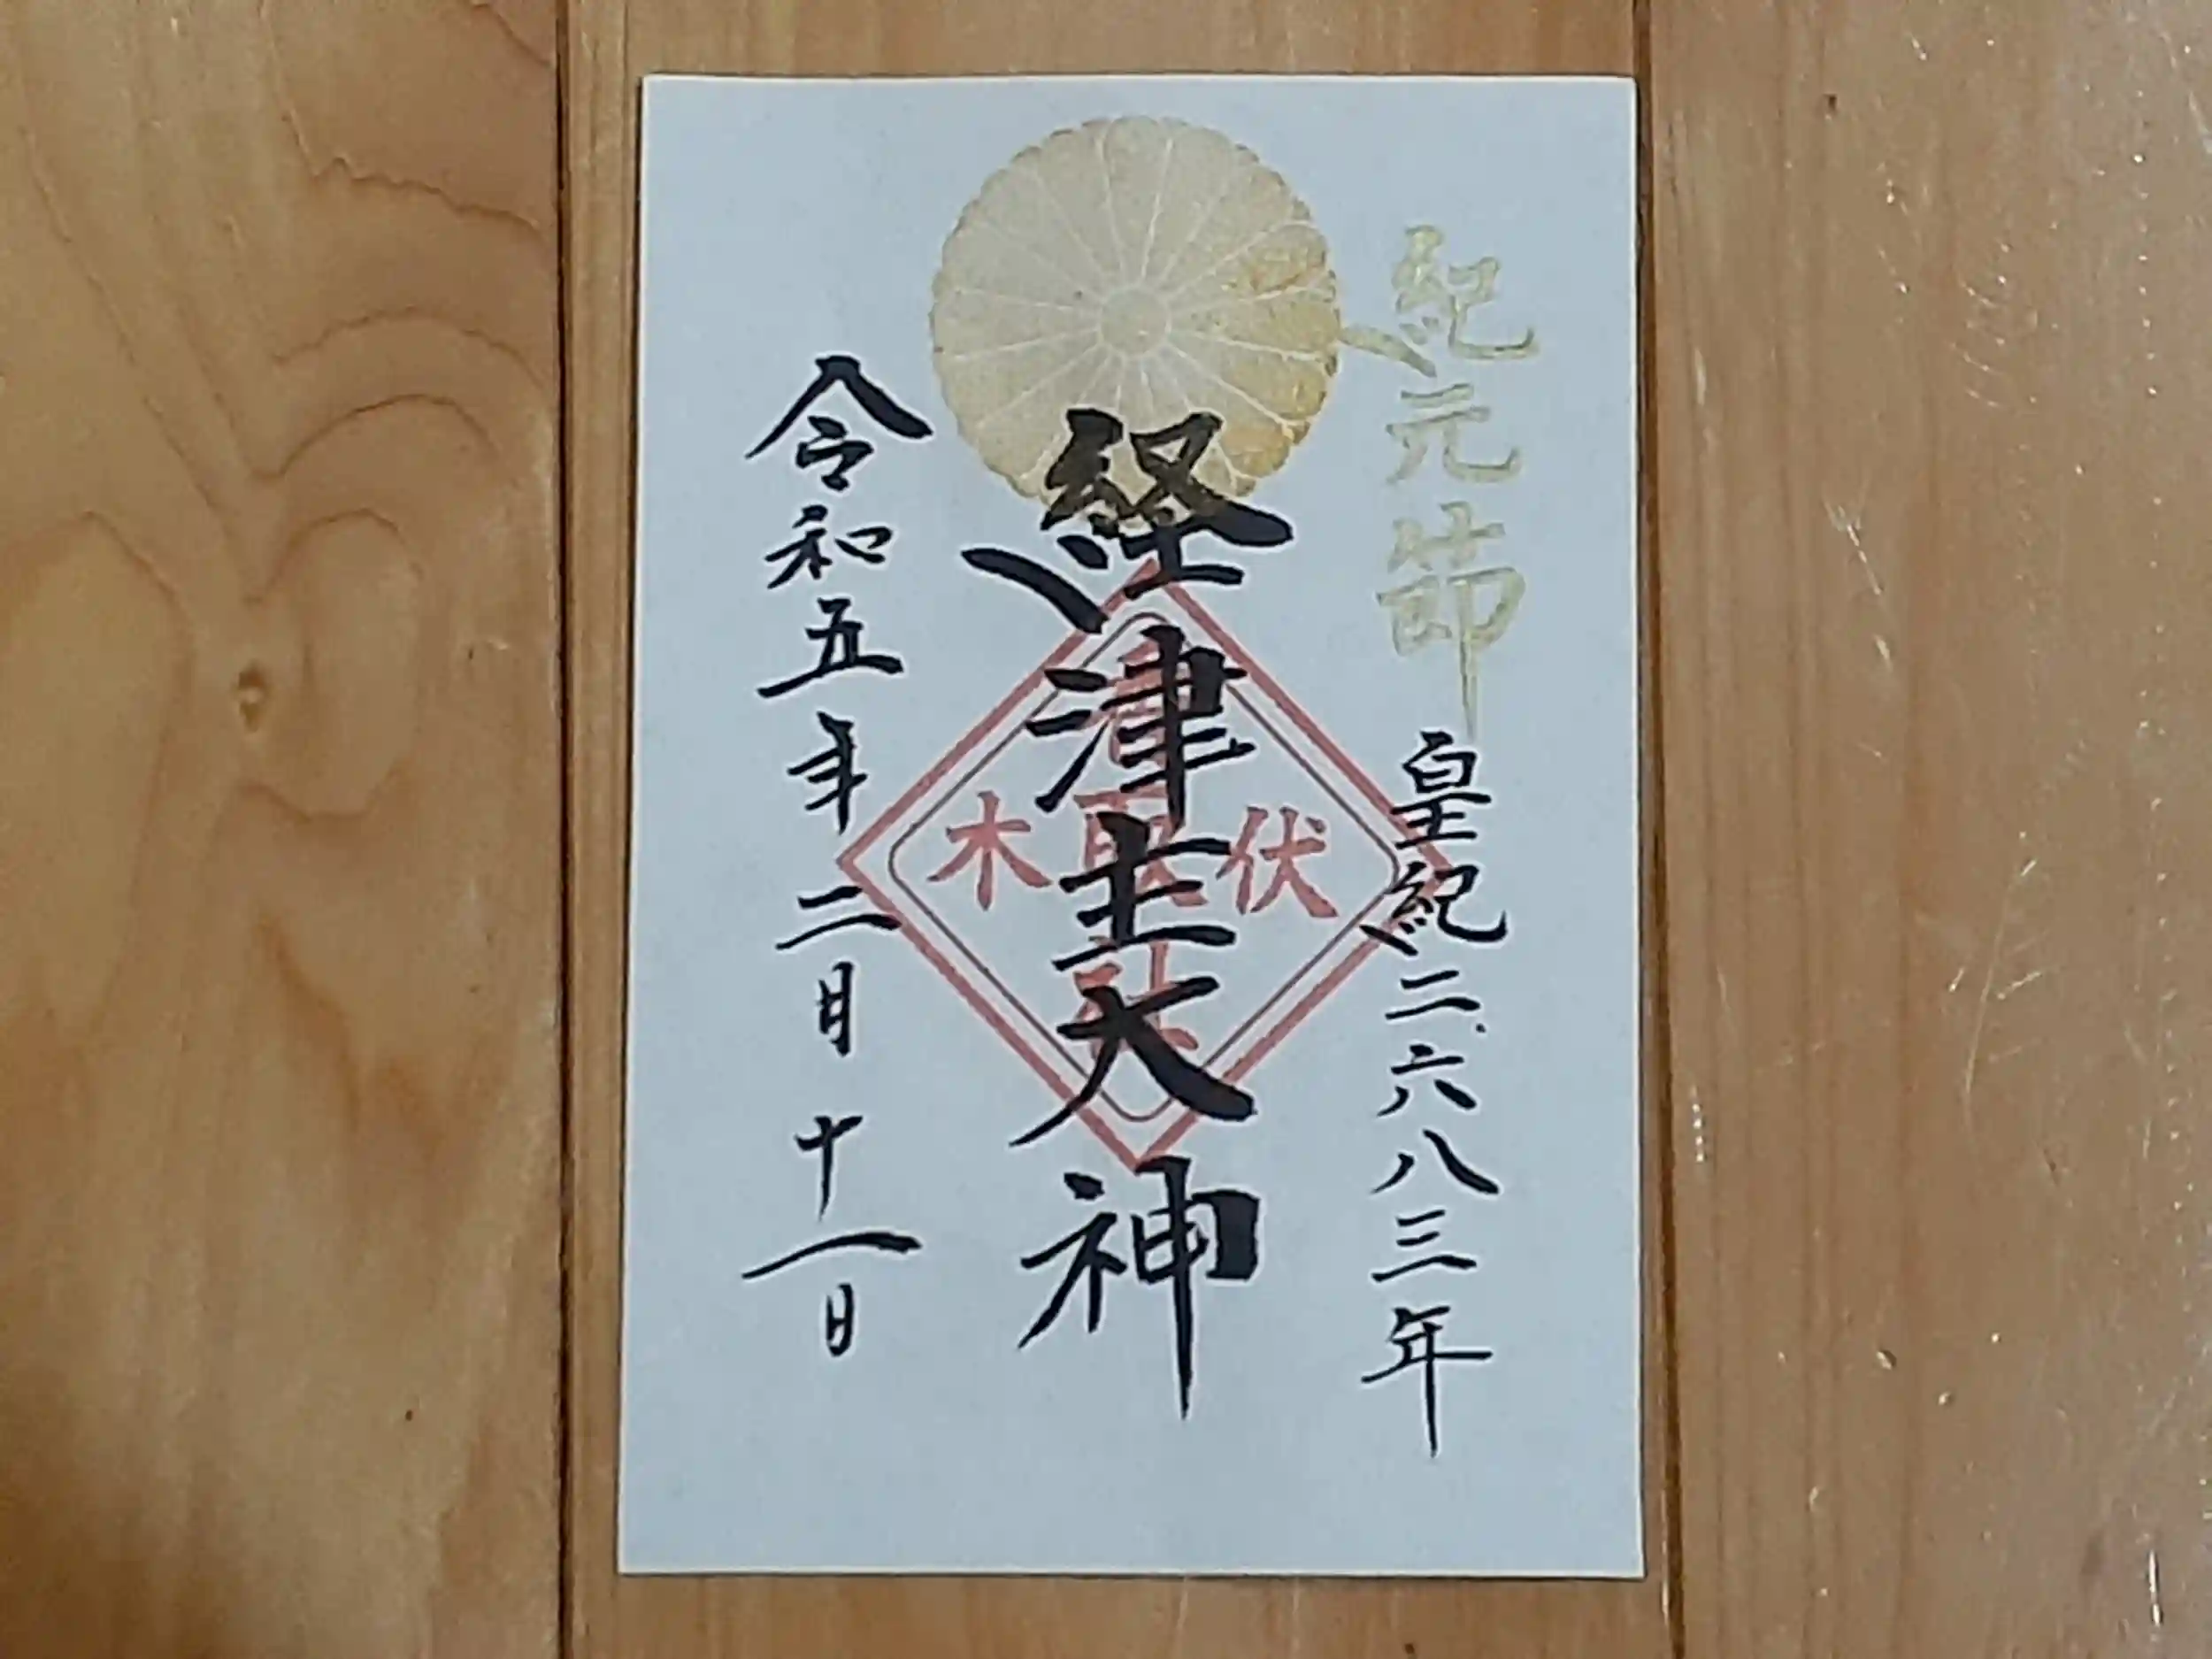 紀元節
皇紀二六八三年
経津主大神
伏見
香取社
木
令和五年二月十一日